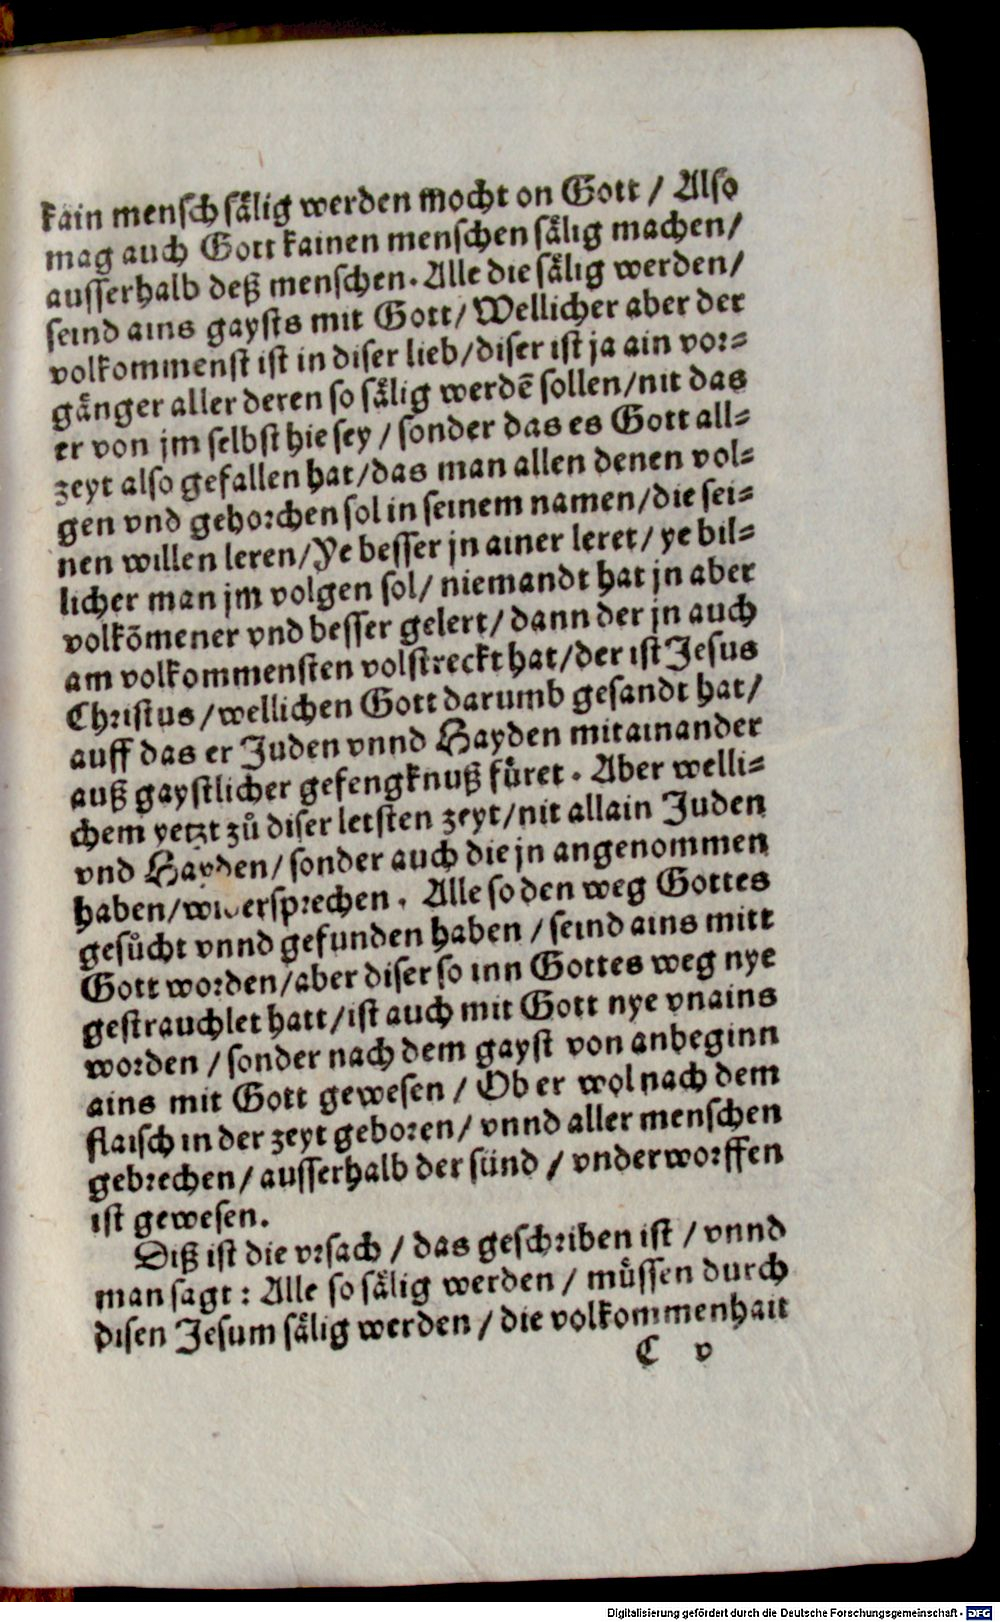 kain mensch sälig werden mocht on Gott / Also
mag auch Gott kainen menschen sälig machen/
ausserhalb deß menschen. Alle die sälig werden/
seind ains gaysts mit Gott/ Wellicher aber der
volkommenst ist in diser lieb/diser ist ja ain vor⸗
gänger aller deren so sälig werdẽ sollen/nit das
er von jm selbst hie sey / sonder das es Gott all⸗
zeyt also gefallen hat/das man allen denen vol⸗
gen vnd gehorchen sol in seinem namen/die sei⸗
nen willen leren/Ye besser jn ainer leret/ ye bil⸗
licher man jm volgen sol/ niemandt hat jn aber
volkõmener vnd besser gelert/ dann der jn auch
am volkommensten volstreckt hat/der ist Jesus
Christus/wellichen Gott darumb gesandt hat/
auff das er Juden vnnd Hayden mitainander
auß gaystlicher gefengknuß füret. Aber welli⸗
chem yetzt zů diser letsten zeyt/nit allain Juden
vnd Hayden/ sonder auch die jn angenommen
haben/widersprechen. Alle so den weg Gottes
gesůcht vnnd gefunden haben / seind ains mitt
Gott worden/aber diser so inn Gottes weg nye
gestrauchlet hatt/ist auch mit Gott nye vnains
worden / sonder nach dem gayst von anbeginn
ains mit Gott gewesen / Ob er wol nach dem
flaisch in der zeyt geboren/ vnnd aller menschen
gebrechen/ ausserhalb der sünd / vnderworffen
ist gewesen.
Diß ist die vrsach / das geschriben ist / vnnd
man sagt : Alle so sälig werden / müssen durch
disen Jesum sälig werden / die volkommenhait
C v
Digitalisierung gefördert durch die Deutsche Forschungsgemeinschaft - DFG